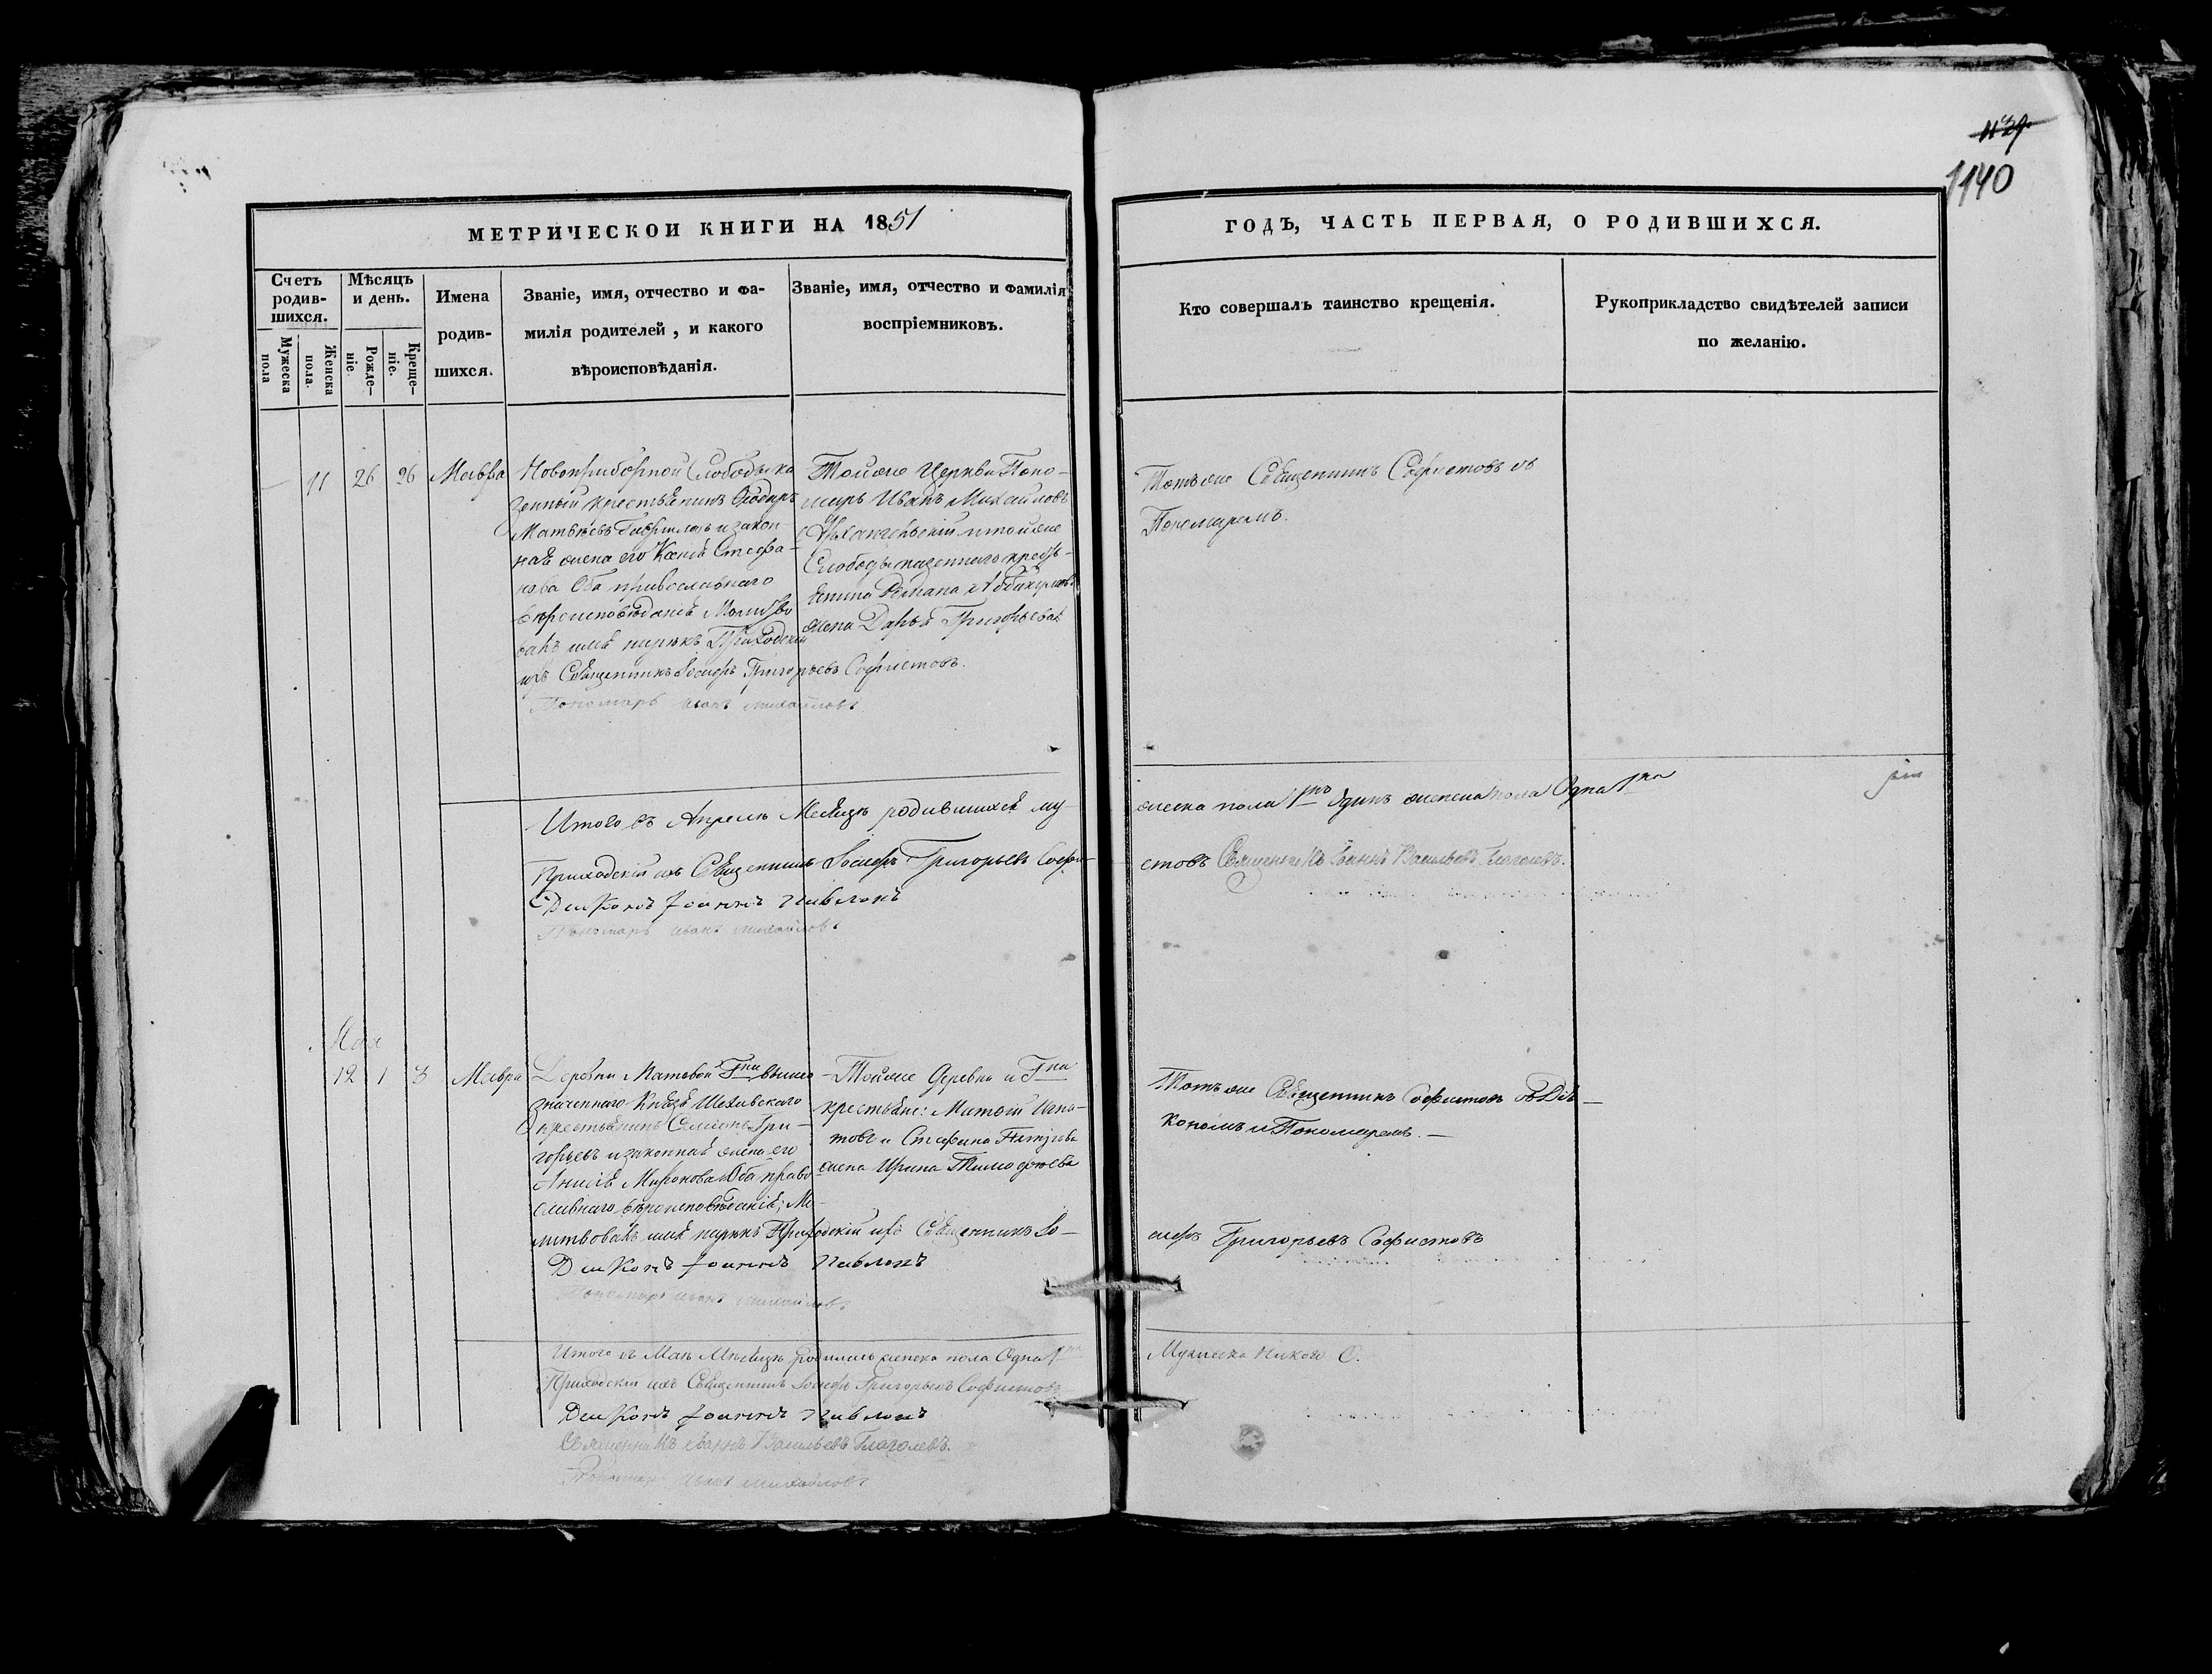 1139
1140
МЕТРИЧЕСКОЙ КНИГИ НА 1851
ГОДЪ, ЧАСТЬ ПЕРВАЯ, О РОДИВШИХСЯ.
Счетъ родив-шихся.
Мужеска пола
Женска пола.
Мѣсяцъ и день.
Рожде-ніе.
Креще-ніе.
Имена
родив-
шихся.
Званіе, имя, отчество и фа-
милія родителей, и какого
вѣроисповѣданія.
Званіе, имя, отчество и фамилія
воспріемниковъ.
Кто совершалъ таинство крещенія.
Рукоприкладство свидѣтелей записи
по желанію.
11 26 26 Мавра
Новоприборной Слободы ка
зенный крестьянинъ
Матвѣевъ Гавриловъ и закон-
ная жена его Ксенія Стефа-
нова Оба православнаго
вѣроисповѣданія Молитво
валъ имя нарекъ Приходскій
ихъ Священникъ Іосифъ Григорьевъ Софистовъ.
Пономарь Иванъ Михайловъ
Тойже Церкви Поно-
марь Иванъ Михайловъ
и тойже
Слободы казеннаго кресть-
янина Романа
жена Дарья Григорьева
Тотъ же Священникъ Софистовъ съ
Пономаремъ.
Итого въ Апрелѣ Месяцѣ родившихся му-
жеска пола 1нъ Одинъ женска пола Одна 1на
Приходскій ихъ Священникъ Іосифъ Григорьевъ Софи-
стовъ Священникъ Іоаннъ Васильевъ Глаголевъ.
Диаконъ Іоаннъ Павловъ
Пономарь Иванъ Михайловъ
Мая
12 1 3 Мавра
Деревни Матовой Гна вышео
значеннаго Князя Шеховскаго
крестьянинъ Симіонъ Гри-
горьевъ и законная жена его
Анисія Миронова Оба право
славнаго вѣроисповѣданія; Мо-
литвовалъ имя нарекъ Приходскій ихъ Священникъ Іо-
сифъ Григорьевъ Софистовъ
Диаконъ Іоаннъ Павловъ
Пономарь Иванъ Михайловъ
Тойже Деревни и Гна
крестьяне: Матвій Игна-
товъ и Стефана Петрова
жена Ирина Тимофеева
Тотъ же Священникъ Софистовъ съ Діа-
кономъ и Пономаремъ.
Итого въ Маѣ Мѣсяцѣ родилась женска пола Одна 1на
Мужеска никого 0.
Приходскій ихъ Священникъ Іосифъ Григорьевъ Софистовъ
Диаконъ Іоаннъ Павловъ
Священникъ Іоаннъ Васильевъ Глаголевъ.
Пономарь Иванъ Михайловъ